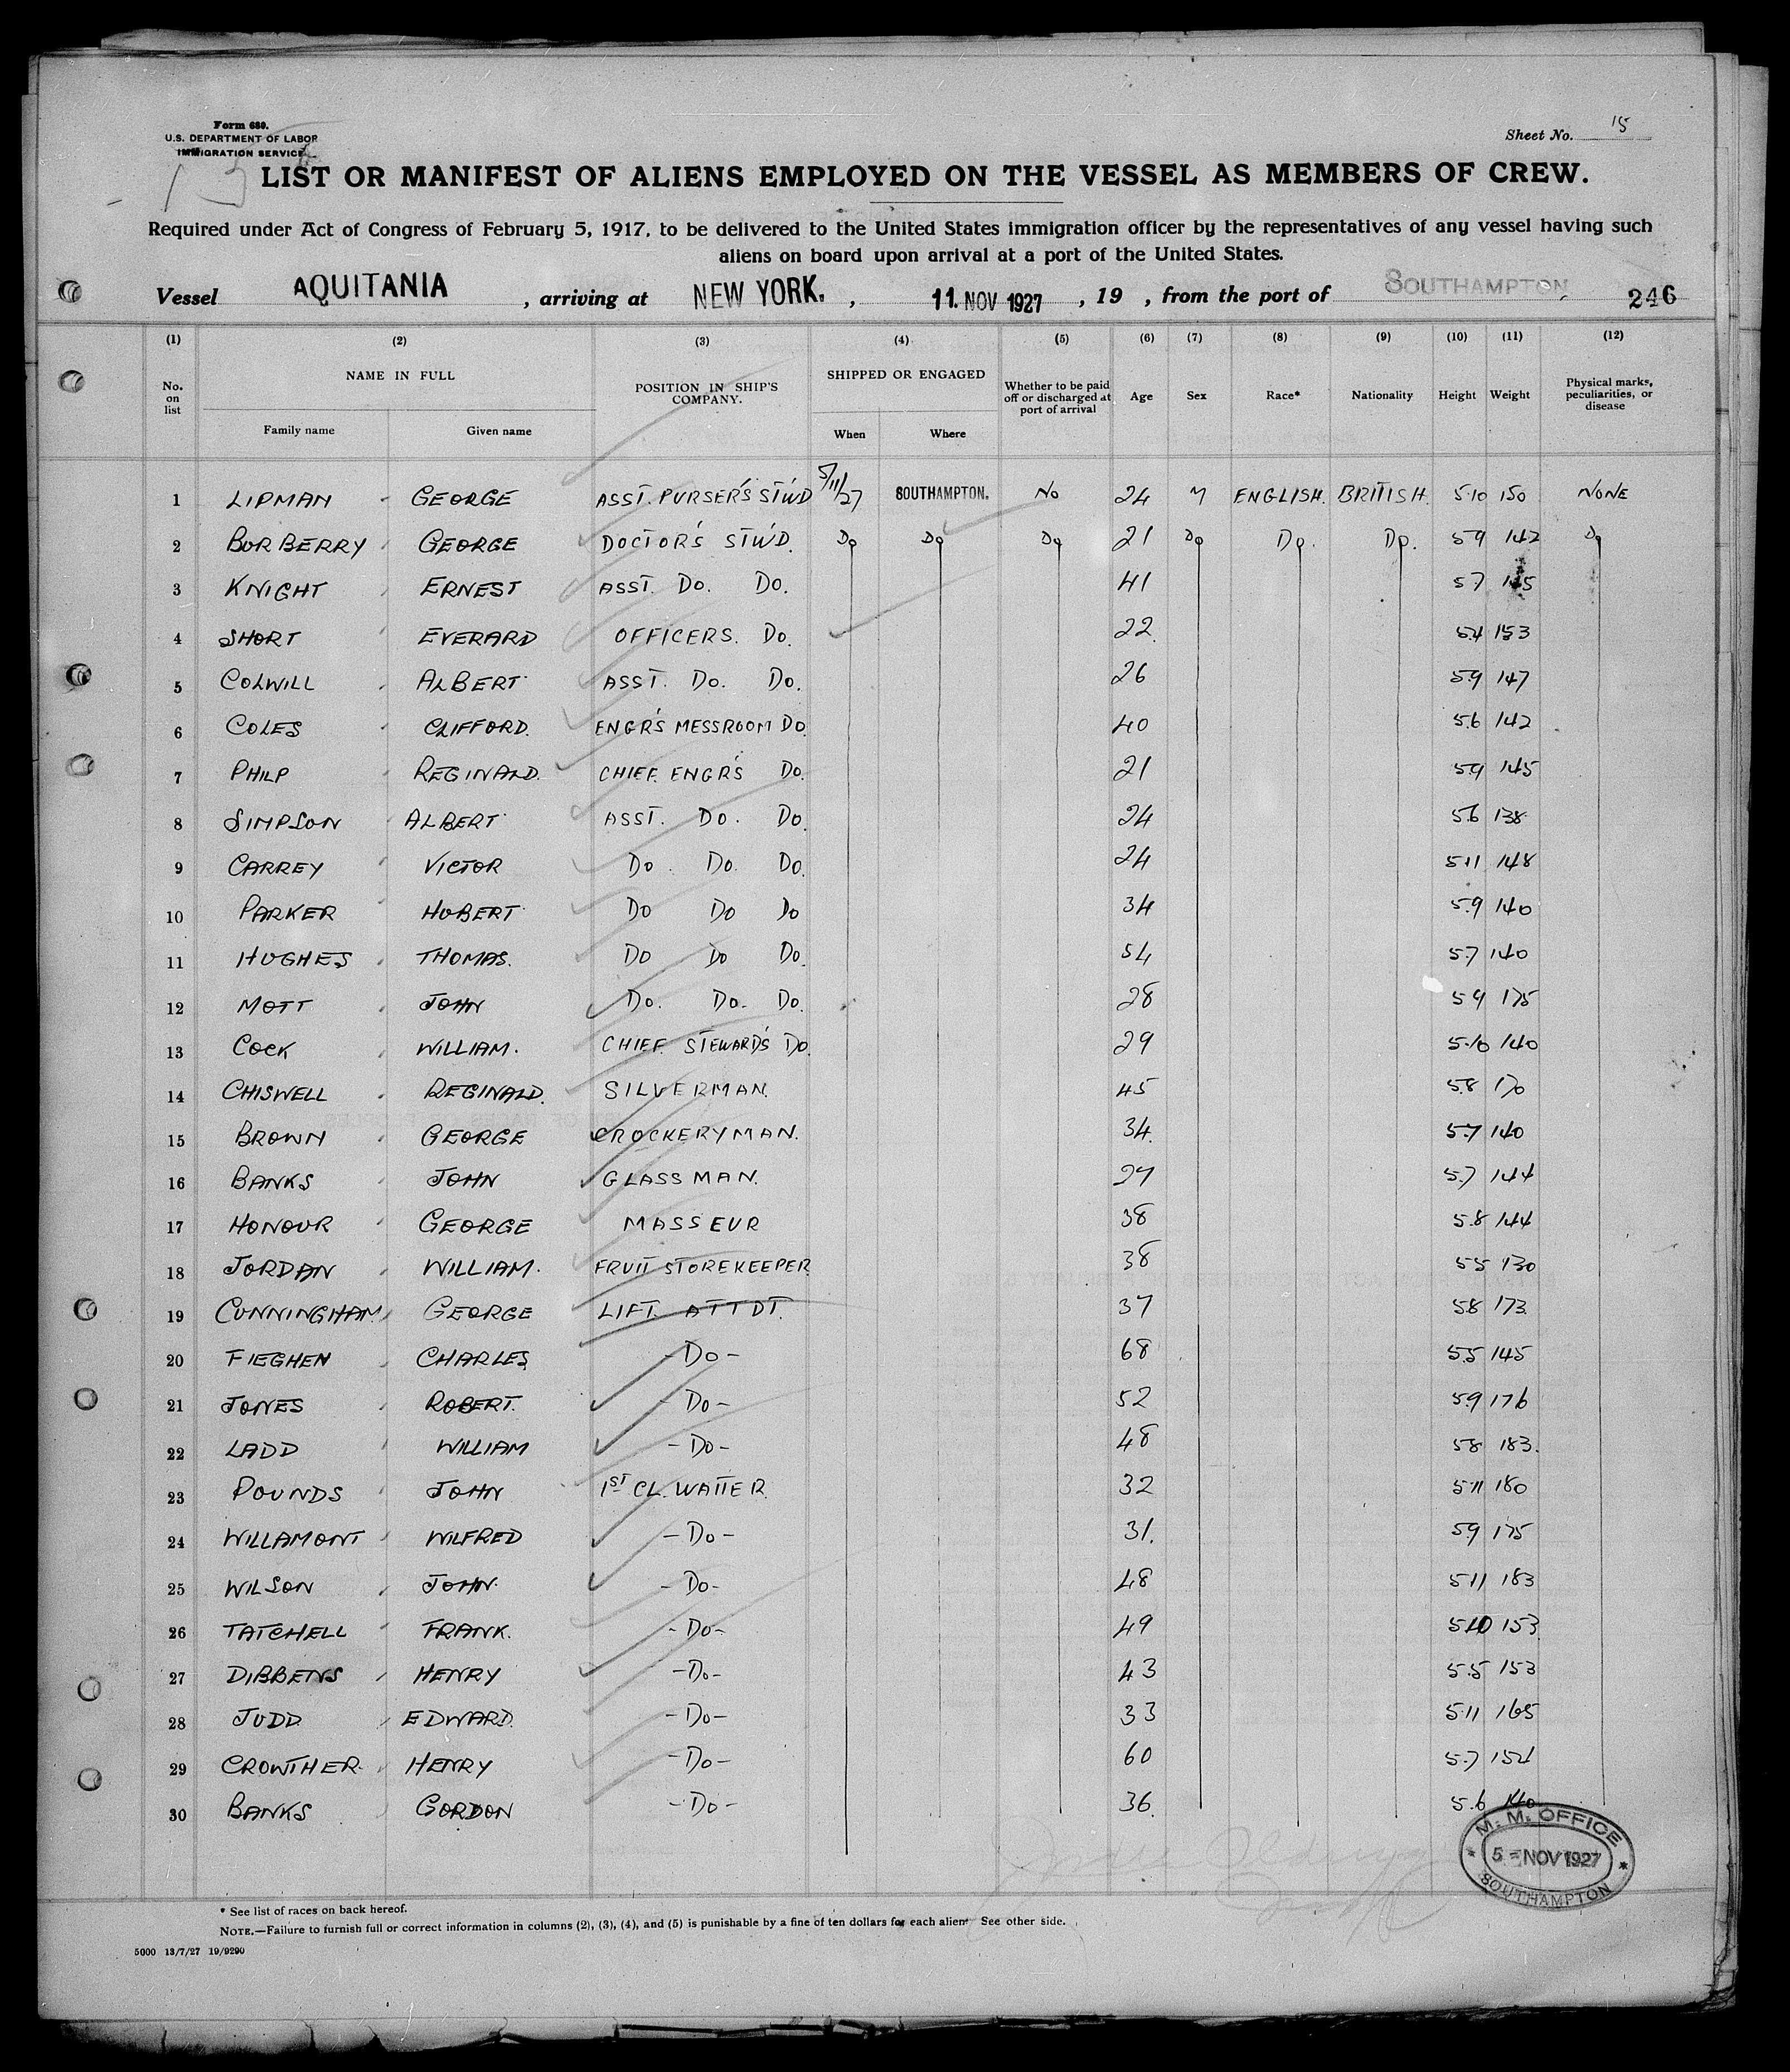 Form 680.
U.S. DEPARTMENT OF LABOR
IMMIGRATION SERVICE
Sheet No. 15
LIST OR MANIFEST OF ALIENS EMPLOYED ON THE VESSEL AS MEMBERS OF CREW.
Required under Act of Congress of February 5, 1917, to be delivered to the United States immigration officer by the representatives of any vessel having such
aliens on board upon arrival at a port of the United States.
Vessel AQUITANIA, arriving at NEW YORK., 11. NOV 1927, 19 , from the port of SOUTHAMPTON 246
(1) (2) (3) (4) (5) (6) (7) (8) (9) (10) (11) (12)
No. on list NAME IN FULL POSITION IN SHIP'S COMPANY. SHIPPED OR ENGAGED Whether to be paid off or discharged at port of arrival Age Sex Race* Nationality Height Weight Physical marks, peculiarities, or disease
Family name Given name When Where
1 LIPMAN GEORGE ASST. PURSER'S STW'D 5/11/27 SOUTHAMPTON. No 24 M ENGLISH. BRITISH. 5.10 150 NONE
2 BURBERRY GEORGE DOCTOR'S STW'D. Do Do Do 21 Do Do. Do. 5 9 142 Do
3 KNIGHT ERNEST ASST. Do. Do. 41 5 7 145
4 SHORT EVERARD OFFICERS. Do. 22. 5.4 153
5 COLWILL ALBERT ASST. Do. Do. 26 5.9 147
6 COLES CLIFFORD. ENGR'S MESSROOM Do 40 5.6 142
7 PHILP REGINALD. CHIEF. ENGR'S Do. 21 5.9 145
8 SIMPSON ALBERT ASST. Do. Do. 24 5.6 138
9 CARREY VICTOR Do. Do. Do. 24 5.11 148
10 PARKER HUBERT Do Do Do 34 5.9 140
11 HUGHES THOMAS. Do Do Do. 54 5.7 140
12 MOTT JOHN Do. Do. Do. 28 5 9 175
13 COCK WILLIAM. CHIEF. STEWARD'S Do. 29 5.10 140
14 CHISWELL REGINALD. SILVERMAN. 45 5.8 170
15 BROWN GEORGE CROCKERYMAN. 34. 5.7 140
16 BANKS JOHN GLASSMAN. 27 5.7 144
17 HONOUR GEORGE MASSEUR 38 5.8 144
18 JORDAN WILLIAM. FRUIT STOREKEEPER 38 5 5 130
19 CUNNINGHAM GEORGE LIFT. ATTDT. 37 5 8 173
20 FIEGHEN CHARLES - Do - 68 5.5 145
21 JONES ROBERT. - Do - 52 5.9 176
22 LADD WILLIAM - Do - 48 5 8 183.
23 POUNDS JOHN 1ST CL. WAITER. 32 5.11 180
24 WILLAMONT WILFRED - Do - 31. 5.9 175
25 WILSON JOHN. - Do - 48 5.11 183
26 TATCHELL FRANK. - Do - 49 5.10 153
27 DIBBENS HENRY - Do - 43 5.5 153
28 JUDD EDWARD. - Do - 33 5.11 165
29 CROWTHER HENRY - Do - 60 5.7 154
30 BANKS GORDON - Do - 36. 5.6 140
M. M. OFFICE
5 - NOV 1927
SOUTHAMPTON
* See list of races on back hereof.
NOTE.—Failure to furnish full or correct information in columns (2), (3), (4), and (5) is punishable by a fine of ten dollars for each alien. See other side.
5000 13/7/27 19/9290